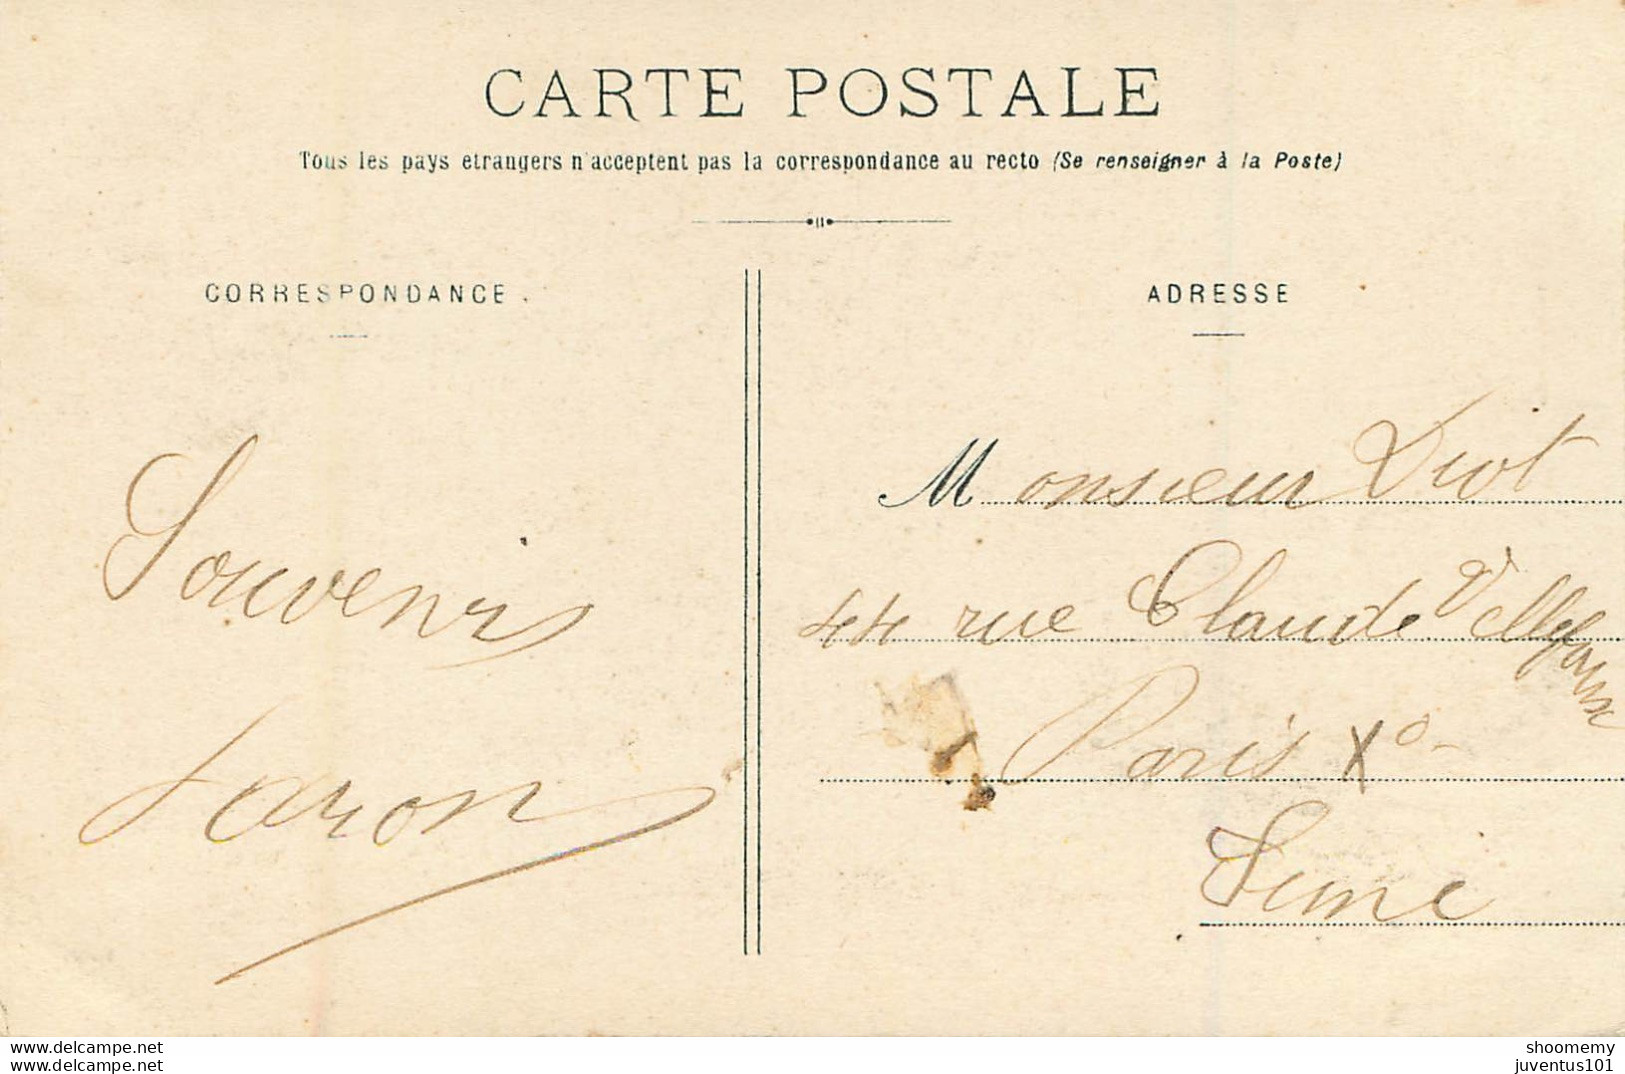 CARTE POSTALE
Tous les pays etrangers n'acceptent pas la correspondance au recto (Se renseigner à la Poste)
CORRESPONDANCE
ADRESSE
Souvenir
Monsieur Diot
44 rue Claude Vellefaux
Paris Xe
Seine
www.delcampe.net
shoomemy
juventus101